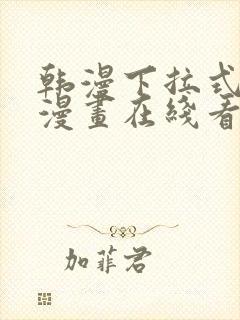 韩漫下拉式
漫畫在綫看
加菲君